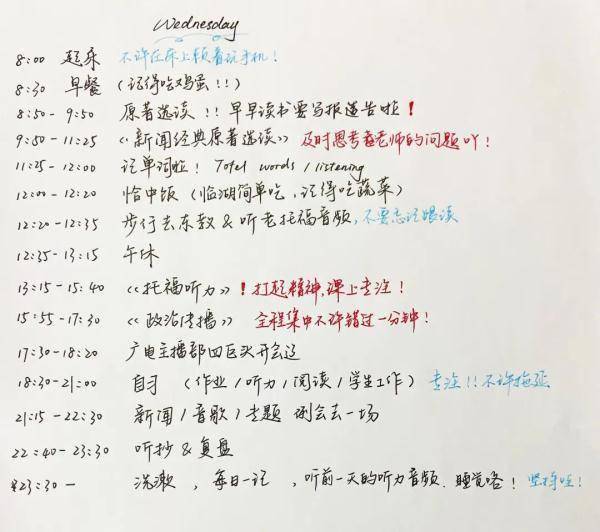 Wednesday
8:00 起床 不许在床上躺着玩手机!
8:30 早餐 (记得吃鸡蛋!!)
8:50-9:50 原著选读!! 早早读书要写报告啦!
9:50-11:25 《新闻经典原著选读》 及时思考老师的问题吖!
11:25-12:00 记单词啦! Totel words / listening
12:00-12:20 恰中饭 (临湖简单吃,记得吃蔬菜)
12:20-12:35 步行去东教 & 听老托福音频,不要忘记跟读
12:35-13:15 午休
13:15-15:40 《托福听力》! 打起精神,课上专注!
15:55-17:30 《政治传播》 全程集中不许错过一分钟!
17:30-18:20 广电主播部四巨头开会这
18:30-21:00 自习 (作业/听力/阅读/学生工作) 专注!!不许拖延
21:15-22:30 新闻/音歌/专题 例会去一场
22:40-23:30 听抄 & 复盘
23:30- 洗漱,每日一记,听前一天的听力音频.睡觉咯! 坚持哇!